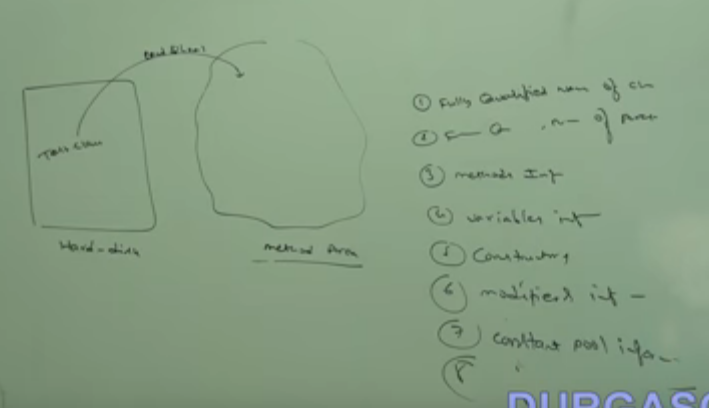 Test.class
Hard-disk
method Area
① Fully Qualified name of
② F Q n of Parent
③ methods Inf
④ variables inf
⑤ Constructors
⑥ modifiers inf -
⑦ constant pool info..
⑧
DURGASO